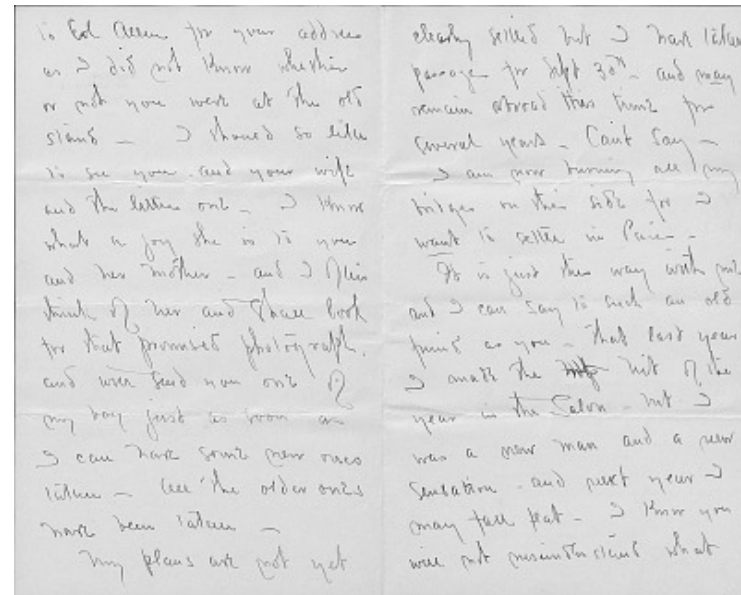 to Col Allen for your address
as I did not know whether
or not you were at the old
stand – I should so like
to see you and your wife
and the little one – I know
what a joy she is to you
and her mother – and I often
think of her and shall look
for that promised photograph.
and will send you one of
my boy just as soon as
I can have some new ones
taken – all the older ones
have been taken –
My plans are not yet
clearly settled but I have taken
passage for Sept 30th – and may
remain abroad this time for
several years – Can't say –
I am now burning all my
bridges on this side for I
want to settle in Paris –
It is just this way with me
and I can say to such an old
friend as you – that last year
I made the hit of the
year in the Salon – but I
was a new man and a new
sensation – and next year I
may fall flat – I know you
will not misunderstand what